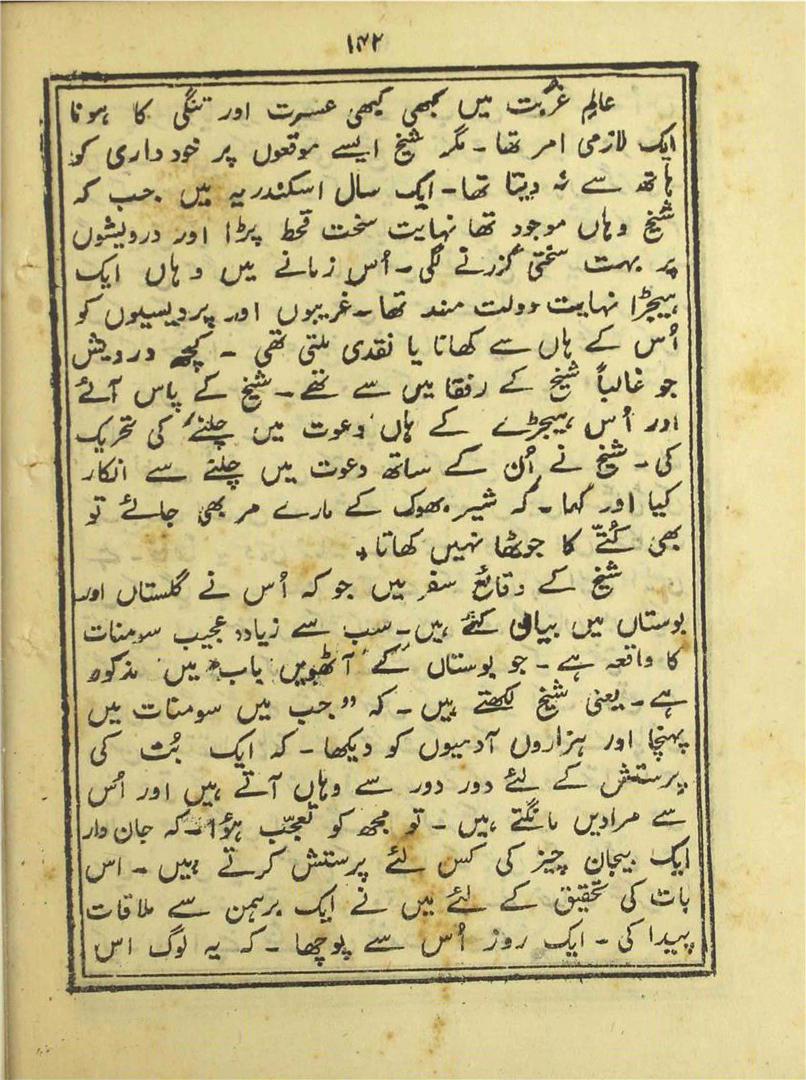 ۱۴۲
عالمِ غُربت میں کبھی کبھی عسرت اور تنگی کا ہونا
ایک لازمی امر تھا۔ مگر شیخ ایسے موقعوں پر خود داری کو
ہاتھ سے نہ دیتا تھا۔ ایک سال اسکندریہ میں جب کہ
شیخ وہاں موجود تھا نہایت سخت قحط پڑا اور درویشوں
پر بہت سختی گزرنے لگی۔ اُس زمانے میں وہاں ایک
ہیجڑا نہایت دولت مند تھا۔ غریبوں اور پردیسیوں کو
اُس کے ہاں سے کھانا یا نقدی ملتی تھی ۔ کچھ درویش
جو غالباً شیخ کے رفقا میں سے تھے۔ شیخ کے پاس آئے
اور اُس ہیجڑے کے ہاں دعوت میں چلنے کی تحریک
کی۔ شیخ نے اُن کے ساتھ دعوت میں چلنے سے انکار
کیا اور کہا۔ کہ شیر بھوک کے مارے مر بھی جائے تو
بھی کُتّے کا جوٹھا نہیں کھاتا٭
شیخ کے وقائع سفر میں جو کہ اُس نے گلستاں اور
بوستاں میں بیان کئے ہیں۔ سب سے زیادہ عجیب سومنات
کا واقعہ ہے۔ جو بوستاں کے آٹھویں باب میں مذکور
ہے۔ یعنی شیخ لکھتے ہیں۔ کہ "جب میں سومنات میں
پہنچا اور ہزاروں آدمیوں کو دیکھا۔ کہ ایک بُت کی
پرستش کے لئے دور دور سے وہاں آتے ہیں اور اُس
سے مرادیں مانگتے ہیں ۔ تو مجھ کو تعجّب ہؤا۔ کہ جان دار
ایک بیجان چیز کی کس لئے پرستش کرتے ہیں۔ اس
بات کی تحقیق کے لئے میں نے ایک برہمن سے ملاقات
پیدا کی۔ ایک روز اُس سے پوچھا ۔ کہ یہ لوگ اس